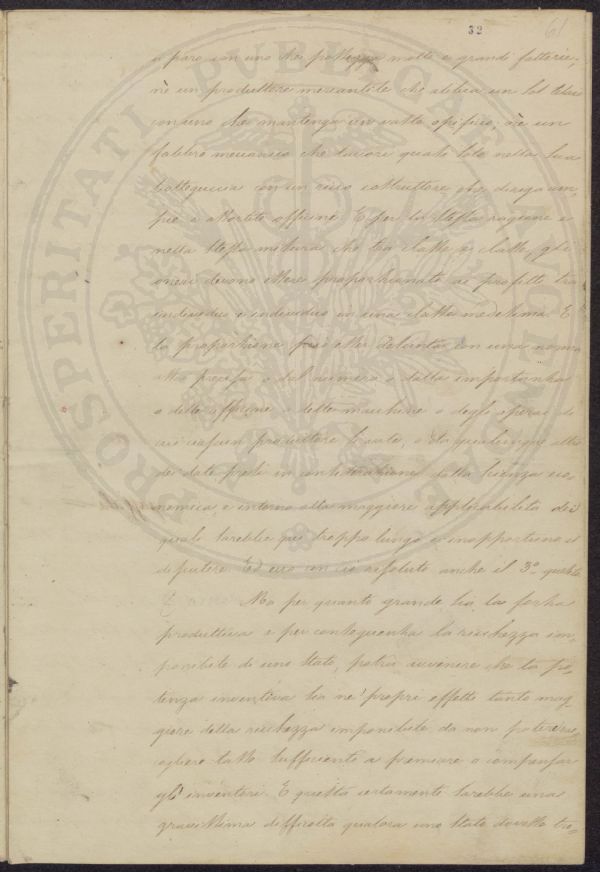 32
61
a paro con uno che possegga molte e grandi fattorie;
nè un produttore mercantile che abbia un sol
con uno che mantenga un vasto opificio; nè un
fabbro meccanico che lavori quasi solo nella sua
botteguccia con un ricco costruttore che diriga am-
pie officine. E per la stessa ragione e
nella stessa misura che tra classe e classe, gli
oneri devono essere proporzionati ai profitti tra
individuo e individuo in una classe medesima. E
la proporzione può esser desunta con una norma
assai precisa o dal numero o dalla importanza
o delle officine o delle macchine o degli operai di
cui ciascun produttore, o da qualunque altro
dei dati presi in considerazione dalla scienza eco-
nomica, e intorno alla maggiore applicabilità dei
quali sarebbe qui troppo lungo e inopportuno il
disputare. Ed ecco con ciò risoluto anche il 3.º quesito
Ma per quanto grande sia la forza
produttiva e per conseguenza la ricchezza im-
ponibile di uno Stato, potrà avvenire che la po-
tenza inventiva sia ne' propri effetti tanto mag-
giore della ricchezza imponibile da non potersi rac-
cogliere tasse sufficienti a premiare o compensar
gl' inventori. E questa certamente sarebbe una
gravissima difficoltà qualora uno Stato dovesse tro-
PROSPERITATI PUBLICAE AUGENDAE